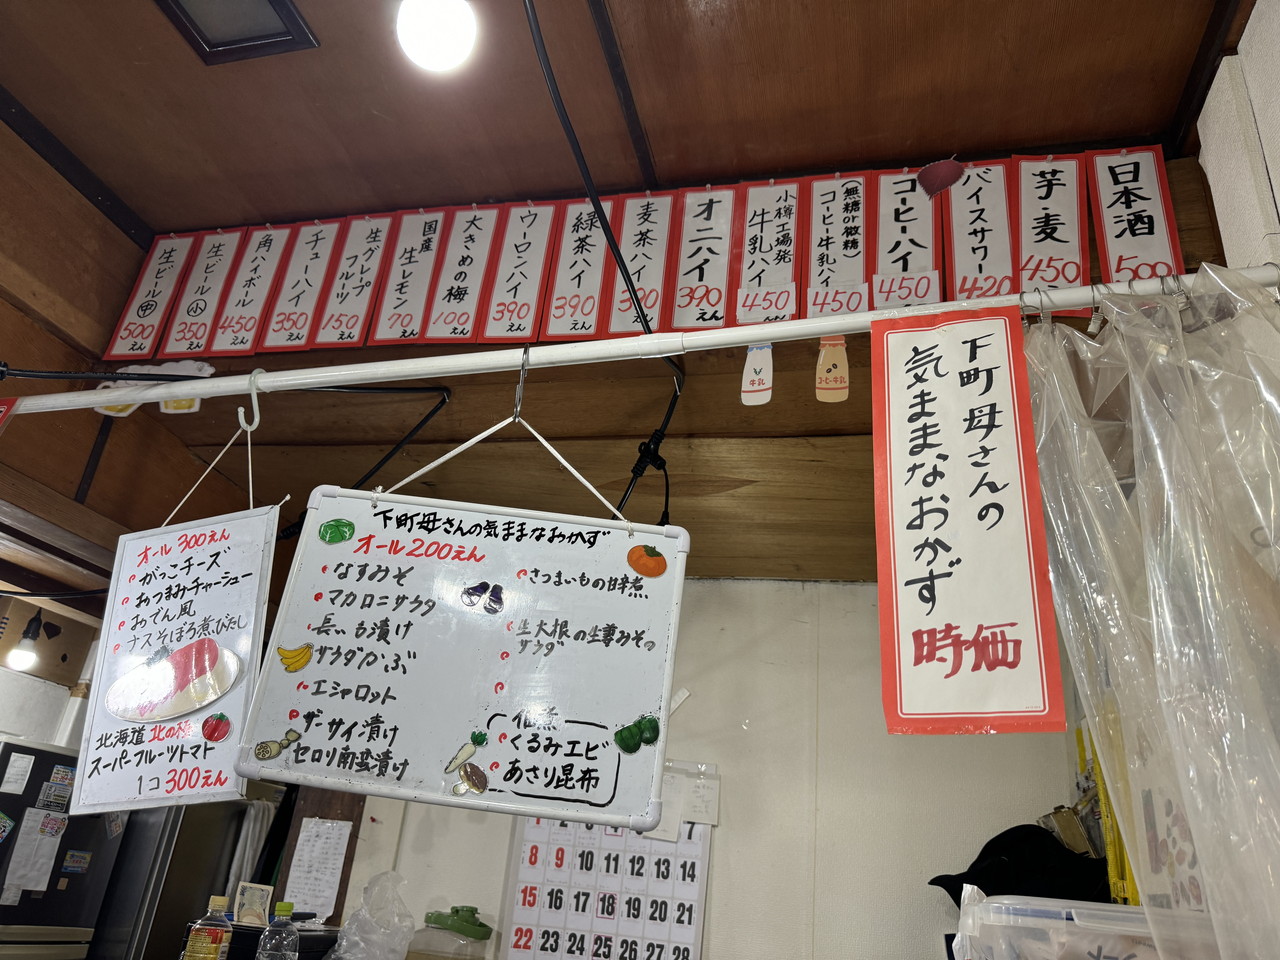 生ビール㊥
500えん
生ビール小
350えん
角ハイボール
450えん
チューハイ
350えん
生グレープ
フルーツ
150えん
国産
生レモン
70えん
大きめの梅
100えん
ウーロンハイ
390えん
緑茶ハイ
390えん
麦茶ハイ
390えん
オニハイ
390えん
小樽工場発
牛乳ハイ
450えん
(無糖or微糖)
コーヒー牛乳ハイ
450
コーヒーハイ
450
バイスサワー
420
芋・麦
450
日本酒
500
牛乳
コーヒー牛乳
下町母さんの
気ままなおかず
時価
オール300えん
がっこチーズ
おつまみチャーシュー
おでん風
ナスそぼろ煮びたし
北海道北の極
スーパーフルーツトマト
1コ300えん
下町母さんの気ままなおかず
オール200えん
なすみそ
マカロニサラダ
長いも漬け
サラダかぶ
エシャロット
ザーサイ漬け
セロリ南蛮漬け
さつまいもの甘煮
生大根の生姜みその
サラダ
佃煮
くるみエビ
あさり昆布
1 2 3 4 7
8 9 10 11 12 13 14
15 16 17 18 19 20 21
22 23 24 25 26 27 28